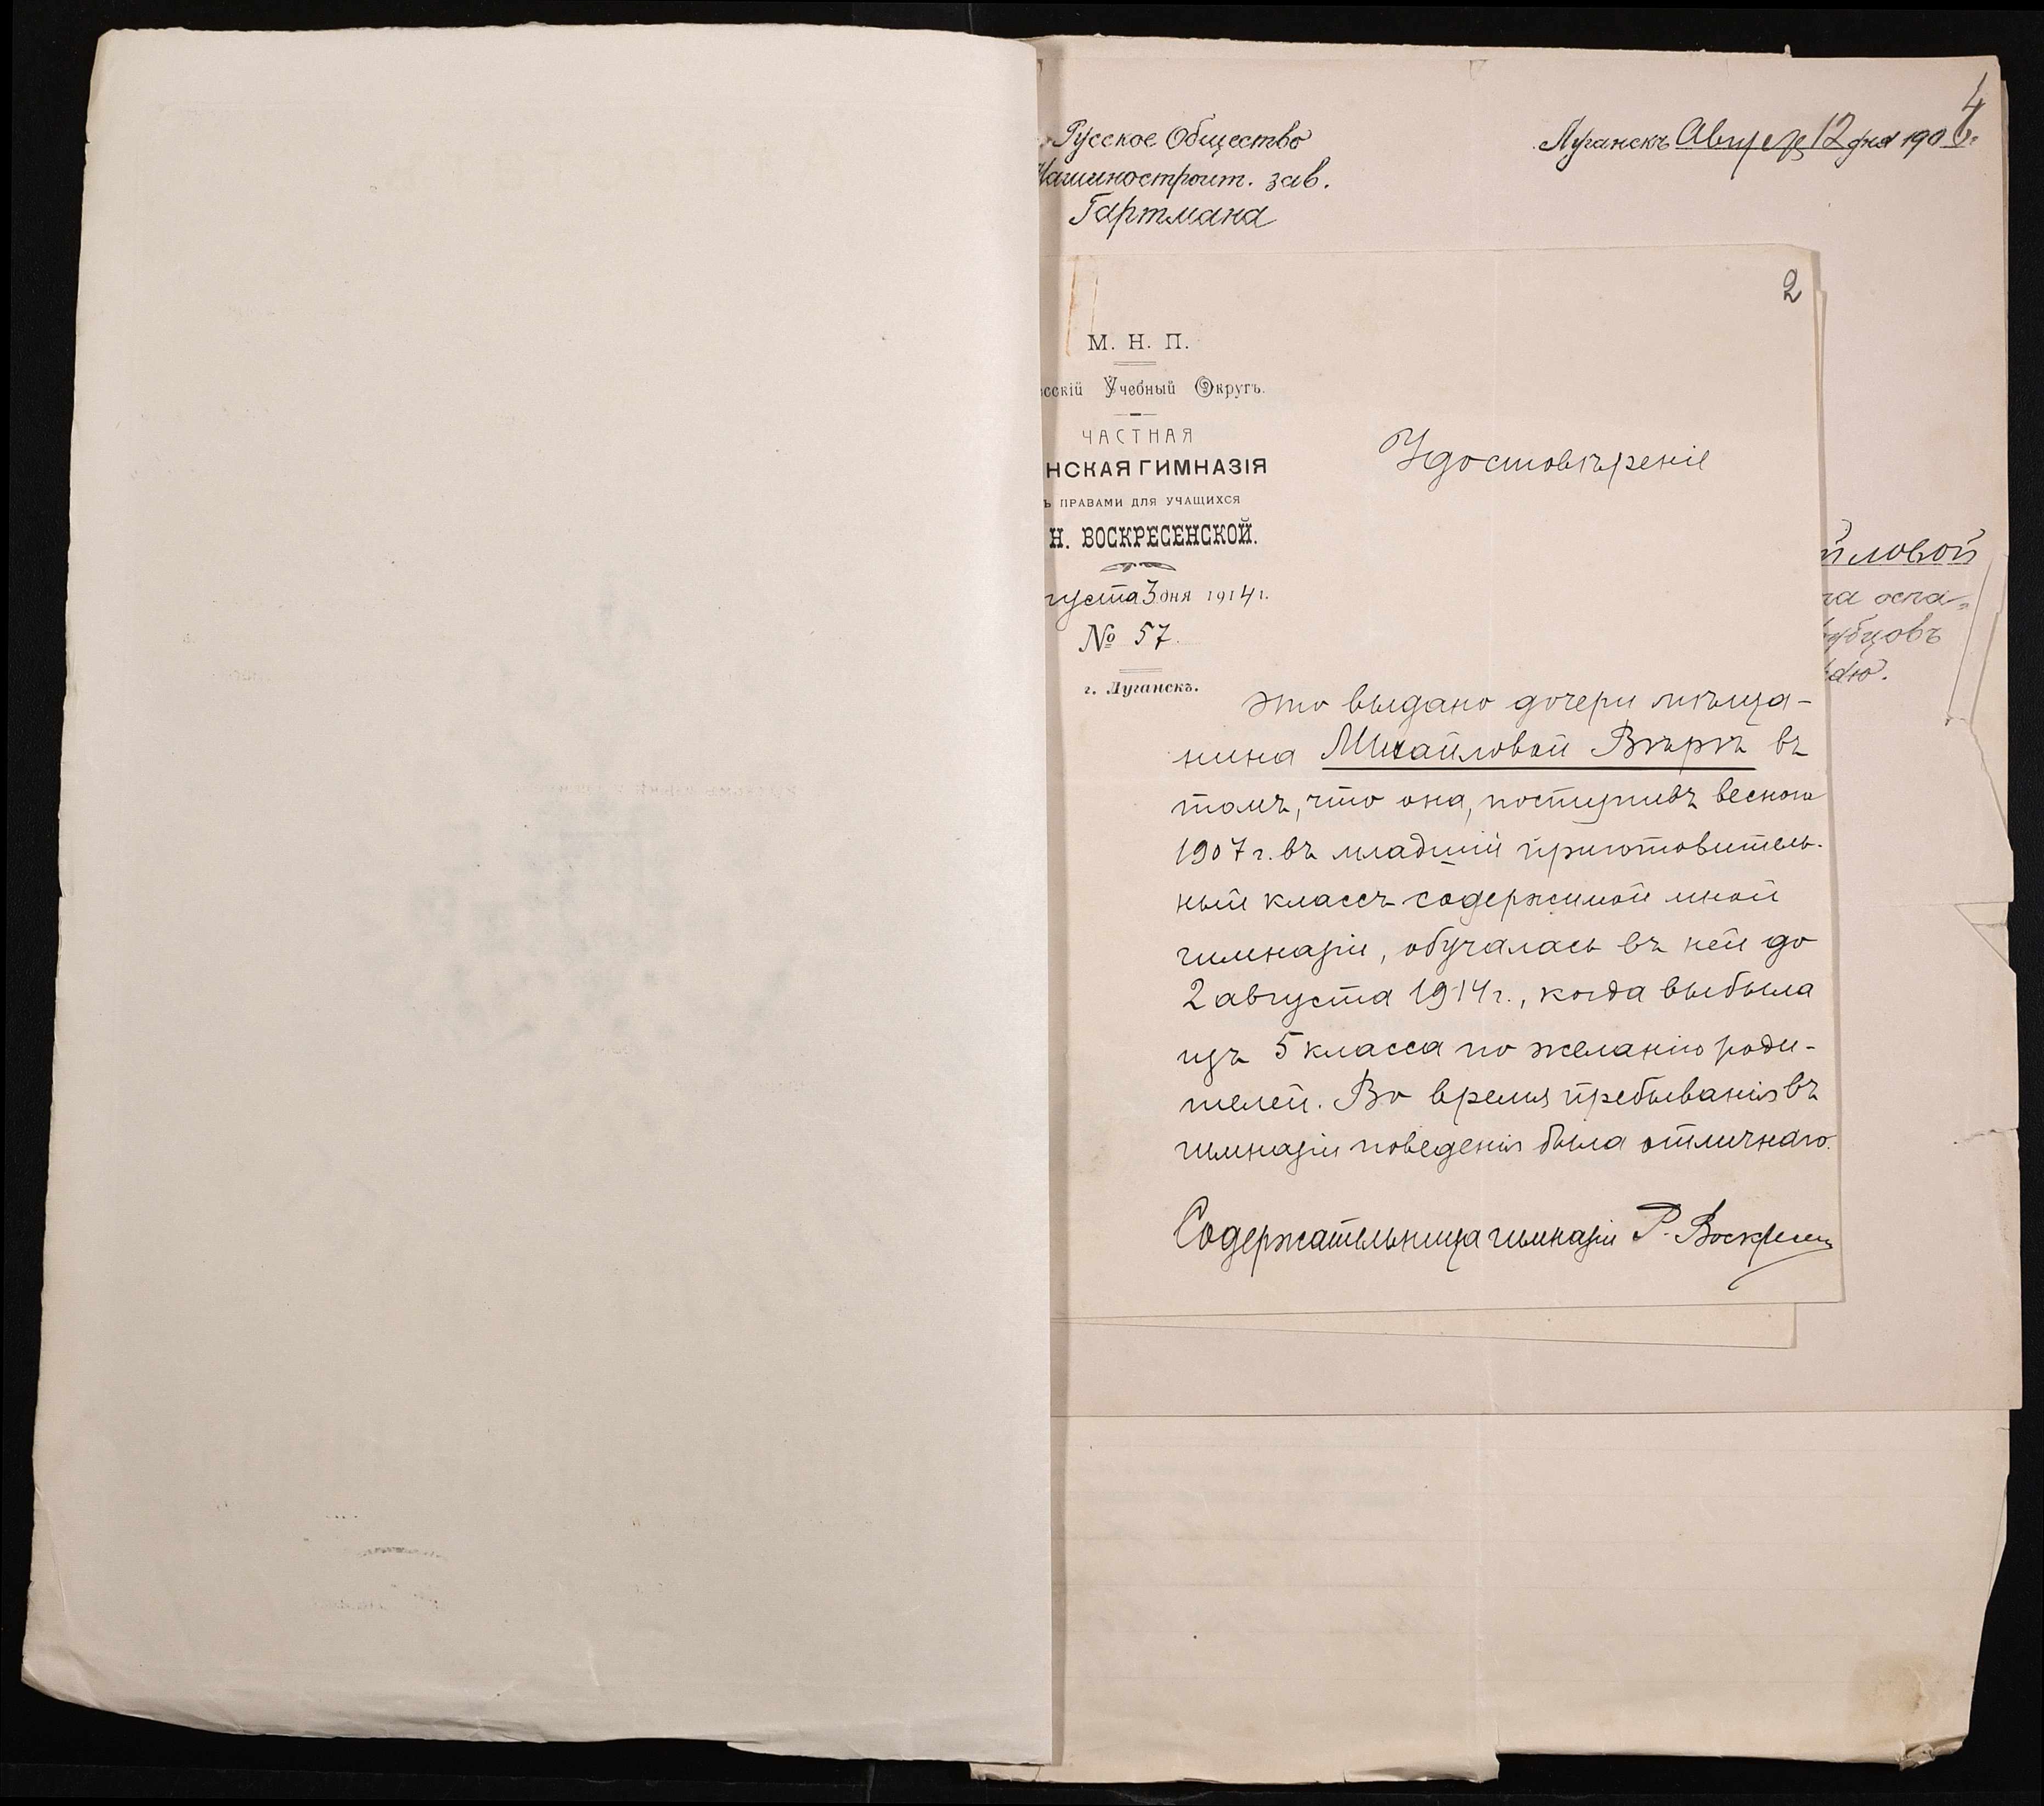 4
Русское Общество
Машиностроит. зав.
Гартмана
Луганскъ Август 12 дня 190
2
М. Н. П.
сскій Учебный Округъ.
ЧАСТНАЯ
НСКАЯ ГИМНАЗІЯ
Ъ ПРАВАМИ ДЛЯ УЧАЩИХСЯ
Н. ВОСКРЕСЕНСКОЙ.
густа 3 дня 1914 г.
№ 57
г. Луганскъ.
Удостовѣреніе
йловой
на оспа-
рубцовъ
даю.
это выдано дочери мѣща-
нина Михайловой Вѣрѣ въ
томъ, что она, поступивъ весною
1907 г. въ младшій приготовитель-
ный классъ содержимой мной
гимназіи, обучалась въ ней до
2 августа 1914 г., когда выбыла
изъ 5 класса по желанію роди-
телей. Во время пребыванія въ
гимназіи поведенія была отличнаго.
Содержательница гимназіи Р. Воскресен